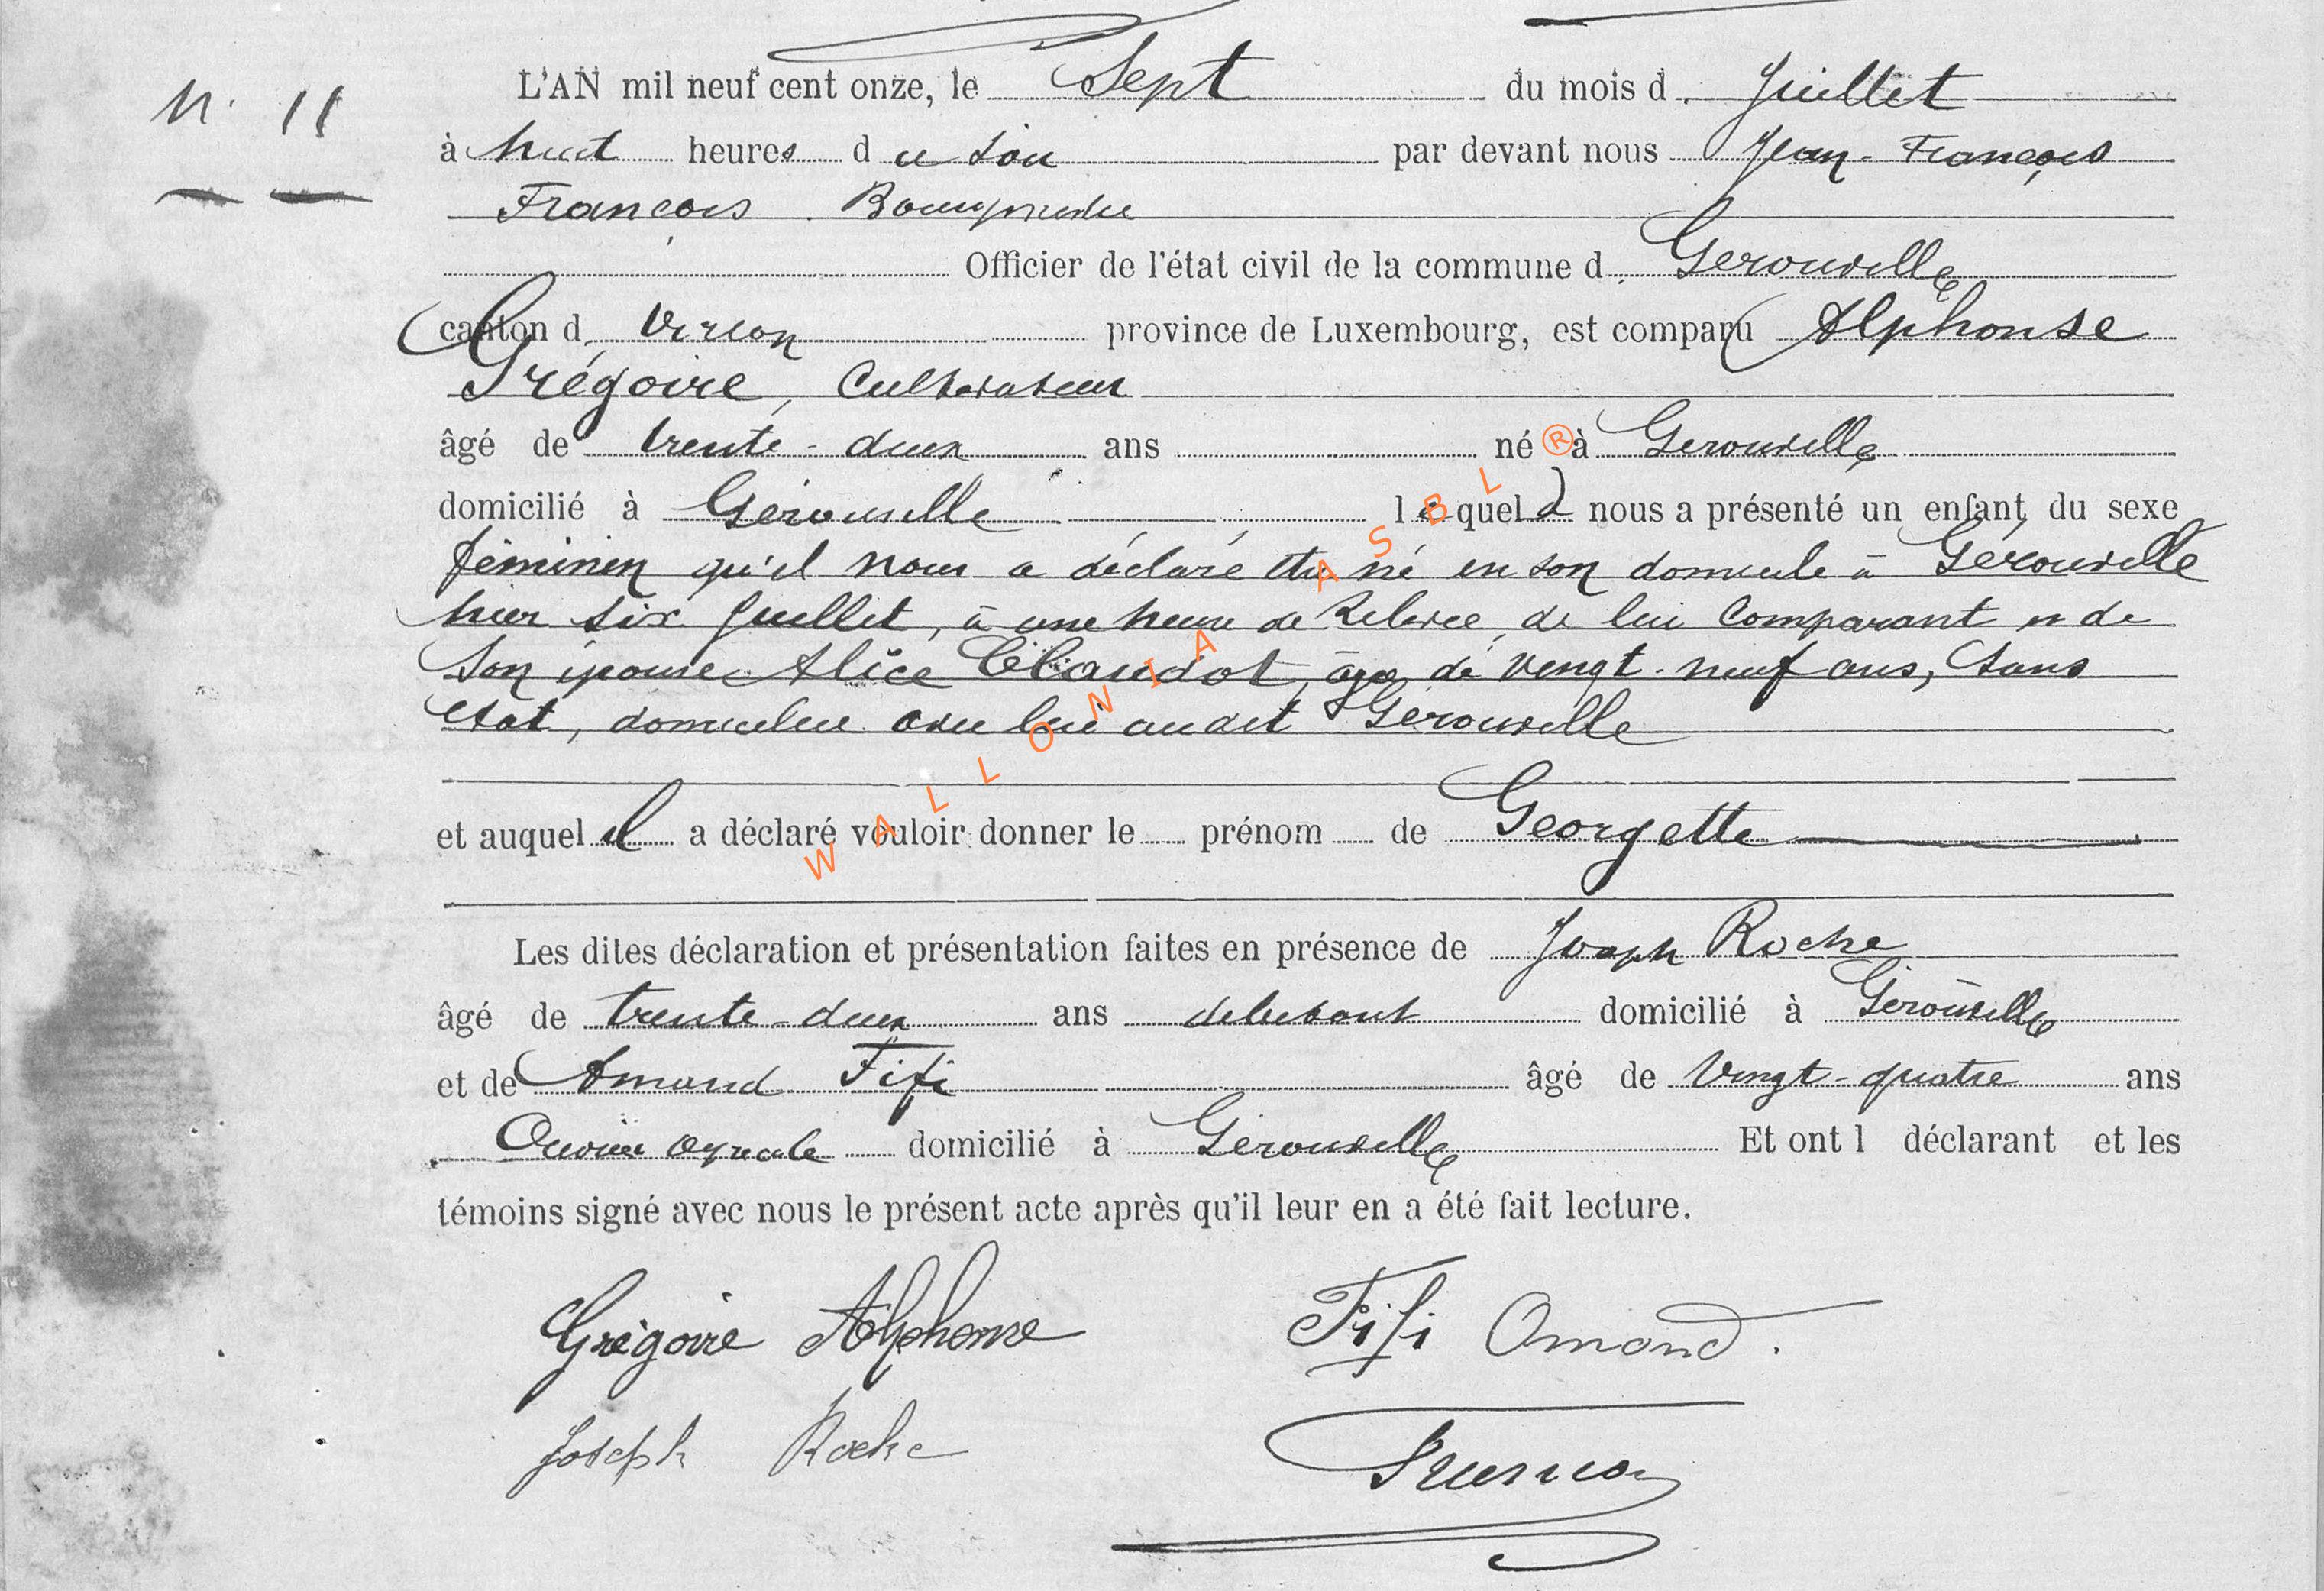 N. 11
L'AN mil neuf cent onze, le Sept du mois d Juillet
à huit heures du soir par devant nous Jean-François
François
Officier de l'état civil de la commune d Gerouville
canton d Virton province de Luxembourg, est comparu Alphonse
Grégoire, Cultivateur
âgé de trente-deux ans né à Gerouville
domicilié à Gérouville lequel nous a présenté un enfant du sexe
féminin qu'il nous a déclaré être né en son domicile à Gérouville
hier six Juillet, à une heure de Relevée, de lui Comparant et de
Son épouse Alice Claudot, âgée de vingt-neuf ans, Sans
état, domiciliée avec lui audit Gerouville
et auquel il a déclaré vouloir donner le prénom de Georgette
Les dites déclaration et présentation faites en présence de Joseph Roche
âgé de trente-deux ans débitant domicilié à Gérouville
et de Amand Fifi âgé de Vingt-quatre ans
Ouvrier agricole domicilié à Gérouville Et ont l déclarant et les
témoins signé avec nous le présent acte après qu'il leur en a été fait lecture.
Grégoire Alphonse Fifi Amand.
Joseph Roche
WALLONIA ASBL ®